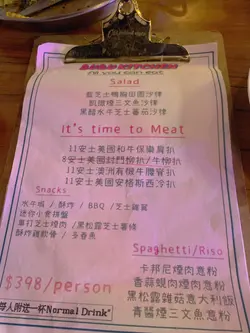 all you can eat
Salad
藍芝士鴨胸田園沙律
凱撒煙三文魚沙律
黑醋水牛芝士番茄沙律
It's time to Meat
11安士美國和牛保樂肩扒
8安士美國封門柳扒/牛柳扒
11安士澳洲有機牛脾扒
11安士美國安格斯西冷扒
Snacks
水牛城 / 酥炸 / BBQ / 芝士雞翼
迷你小食拼盤
車打芝士燒肉 / 黑松露芝士薯條
酥炸雞軟骨 / 多春魚
Spaghetti/Riso
卡邦尼煙肉意粉
香蒜蜆肉煙肉意粉
黑松露雜菇意大利飯
青醬煙三文魚意粉
$398/person
每人附送一杯Normal Drink*